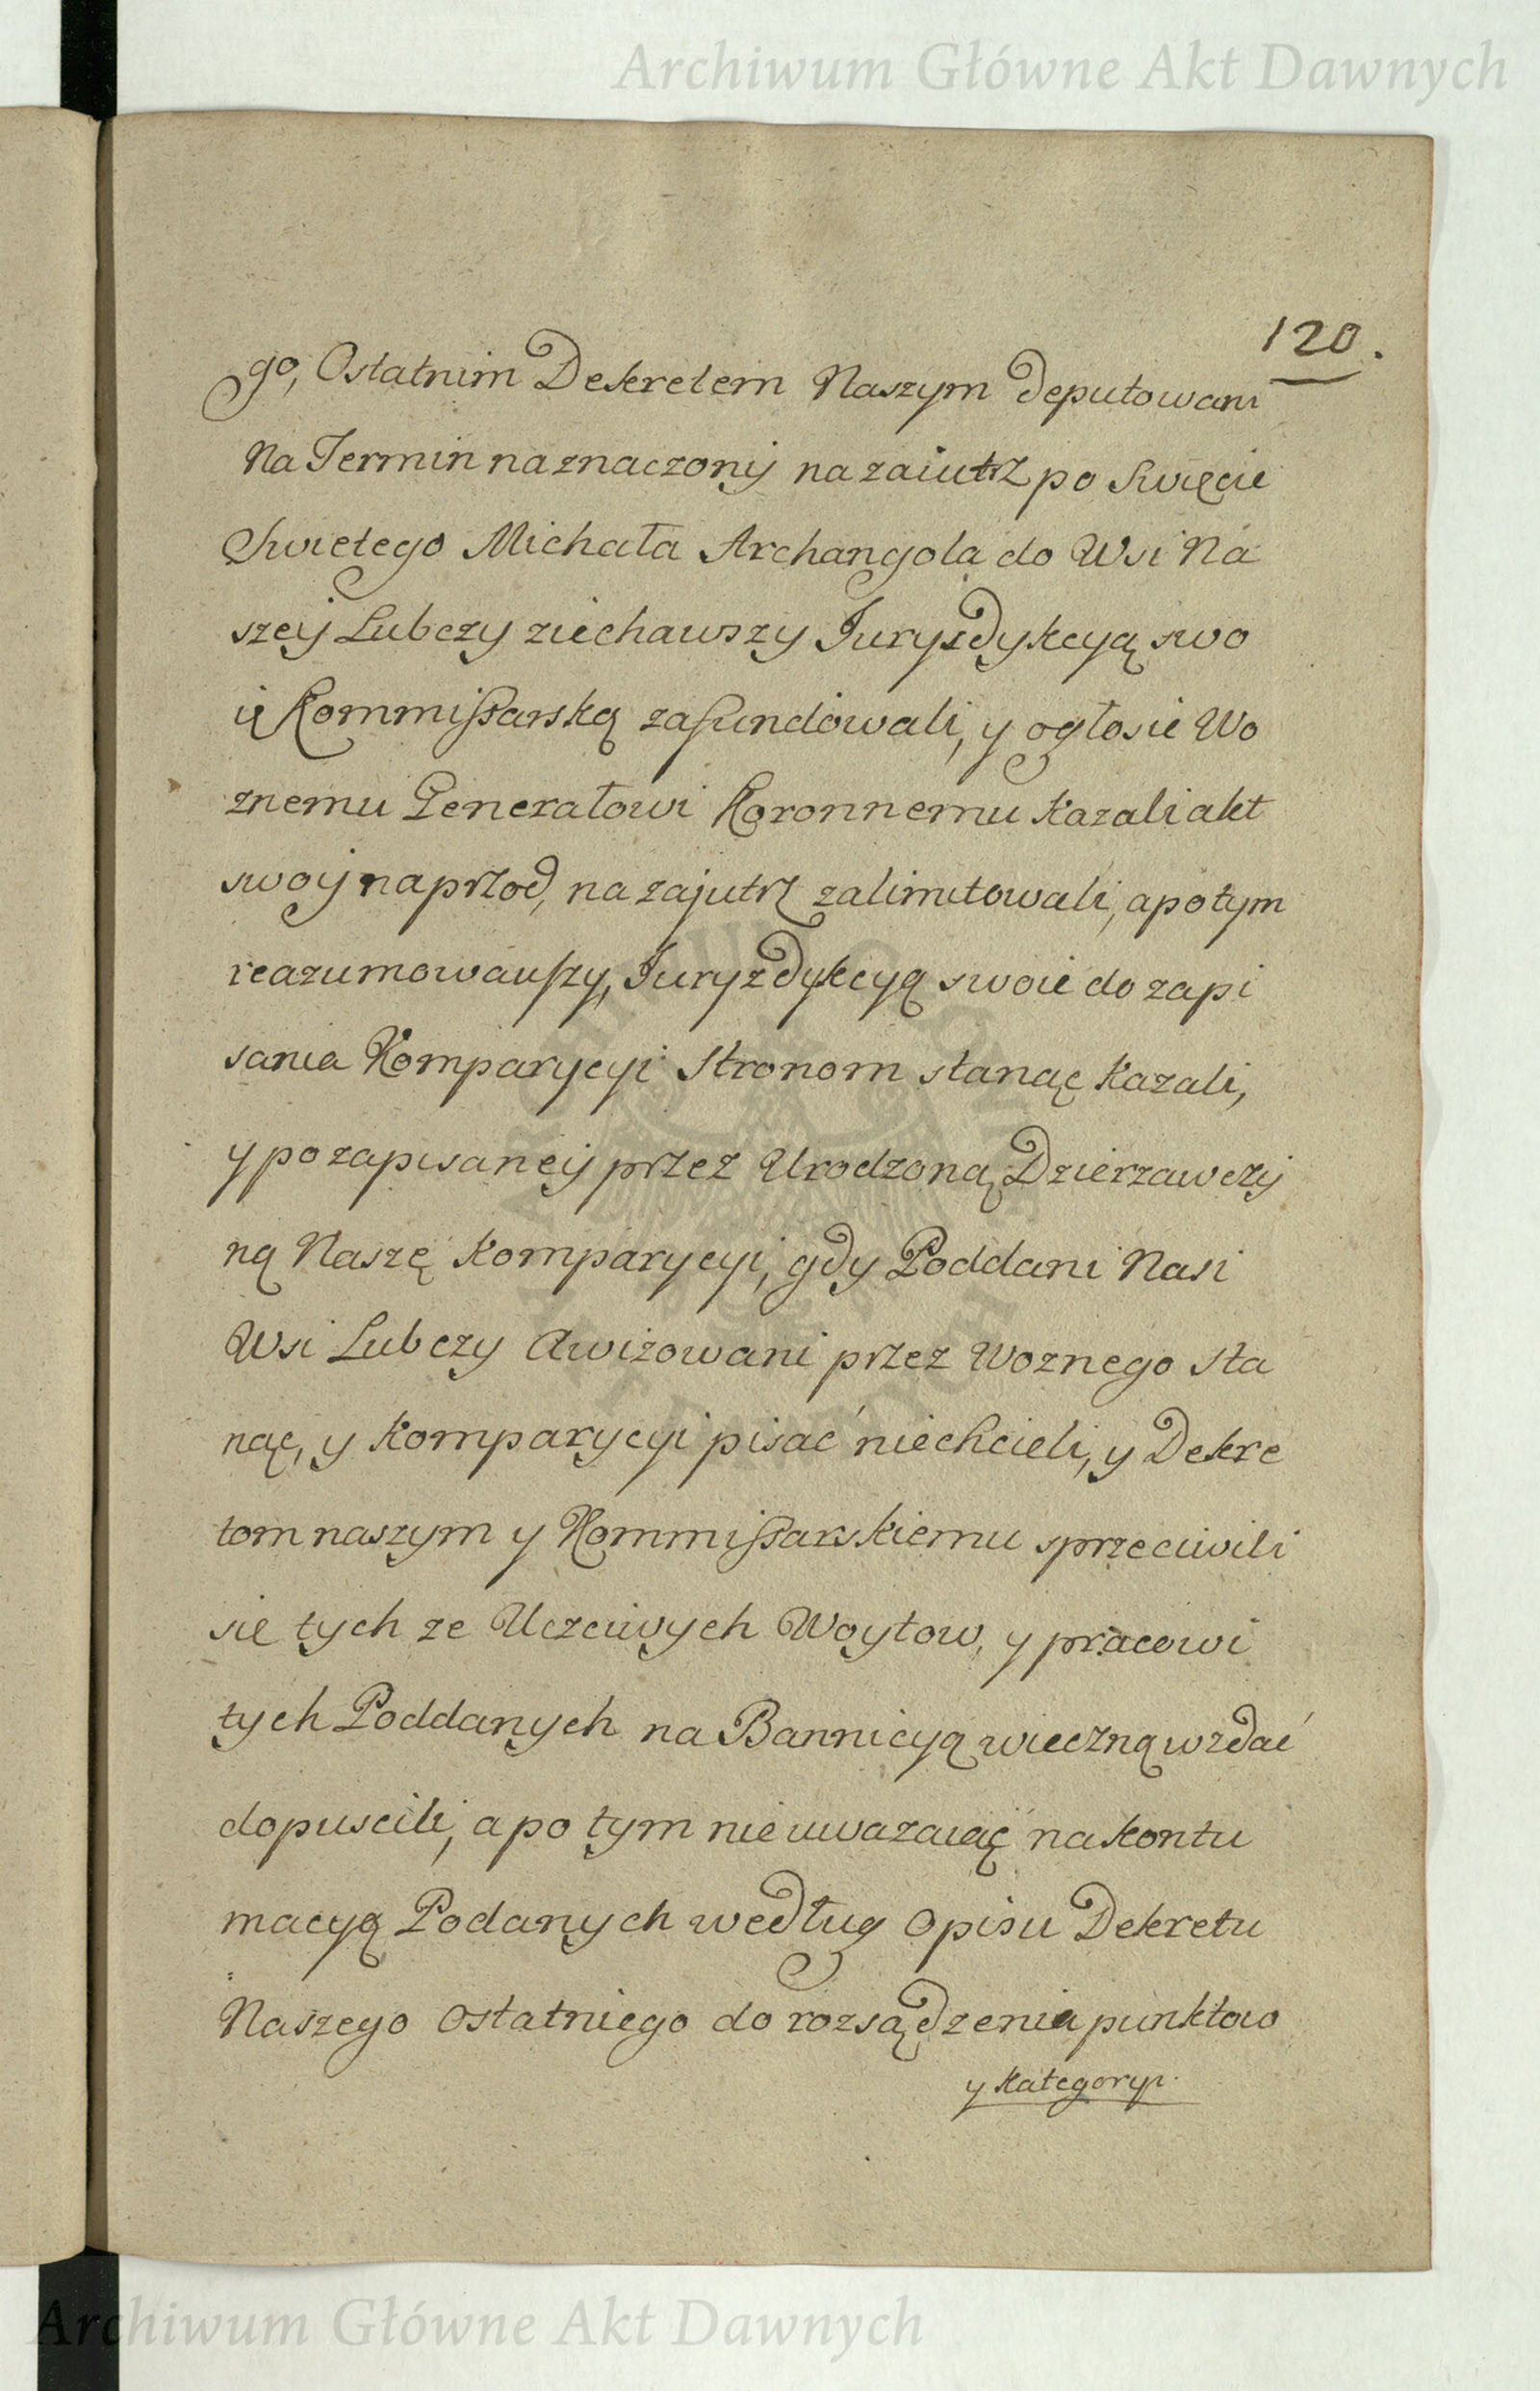 Archiwum Główne Akt Dawnych
120.
go, Ostatnim Dekretem Naszym deputowani
Na Termin naznaczony nazaiutrz po Swięcie
Swietego Michała Archangola do Wsi Na
szey Lubczy ziechawszy Jurysdykcyą swo
ię Kommissarską zafundowali, y ogłosić Wo
znemu Generałowi Koronnemu kazali akt
swoy naprzod, na zajutrz zalimitowali, apotym
reazumowawszy, Juryzdykcyą swoie do zapi
sania Komparycyi Stronom stanąć kazali,
y po zapisaney przez Urodzoną Dzierzawczy
ną Naszę Komparycyi, gdy Poddani Nasi
Wsi Lubczy Awizowani przez Woznego sta
nąć, y Komparycyi pisać niechcieli, y Dekre
tom naszym y Kommissarskiemu sprzeciwili
sie tych ze Uczciwych Woytow, y pracowi
tych Poddanych na Bannicyą wieczną wzdać
dopuscili, a po tym nie uwazaiąć na kontu
macyą Podanych według Opisu Dekretu
Naszego Ostatniego do rozsądzenia punktow
y Kategoryi
Archiwum Główne Akt Dawnych